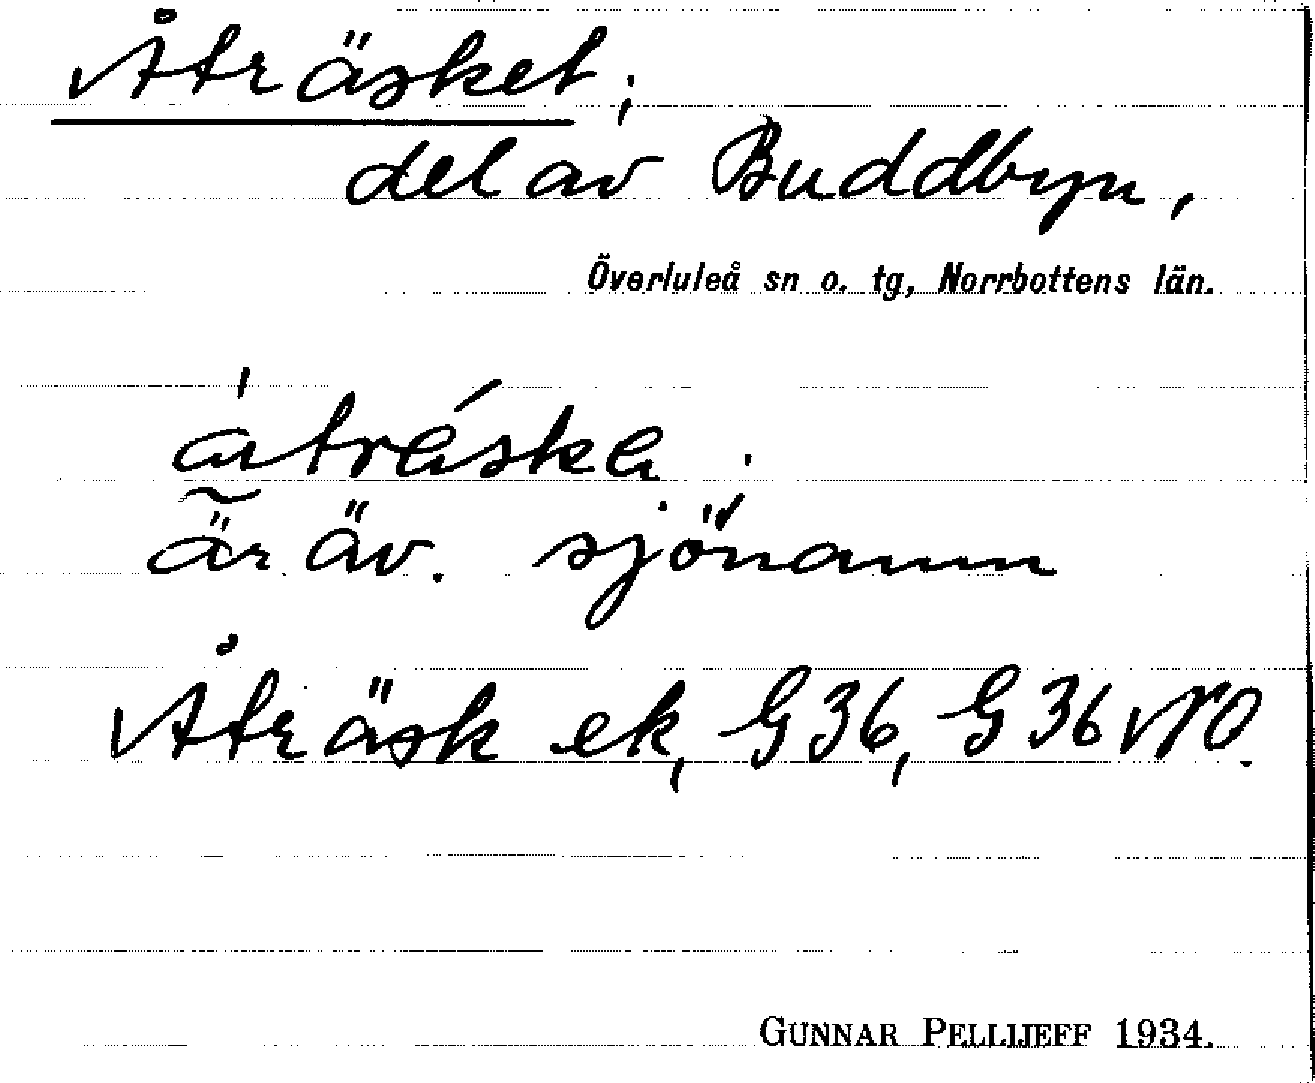 Åträsket;
del av Buddbyn,
Överluleå sn o. tg, Norrbottens län.
är äv. sjönamn
Åträsk ek, G 36, G 36 NO.
GUNNAR PELLIJEFF 1934.